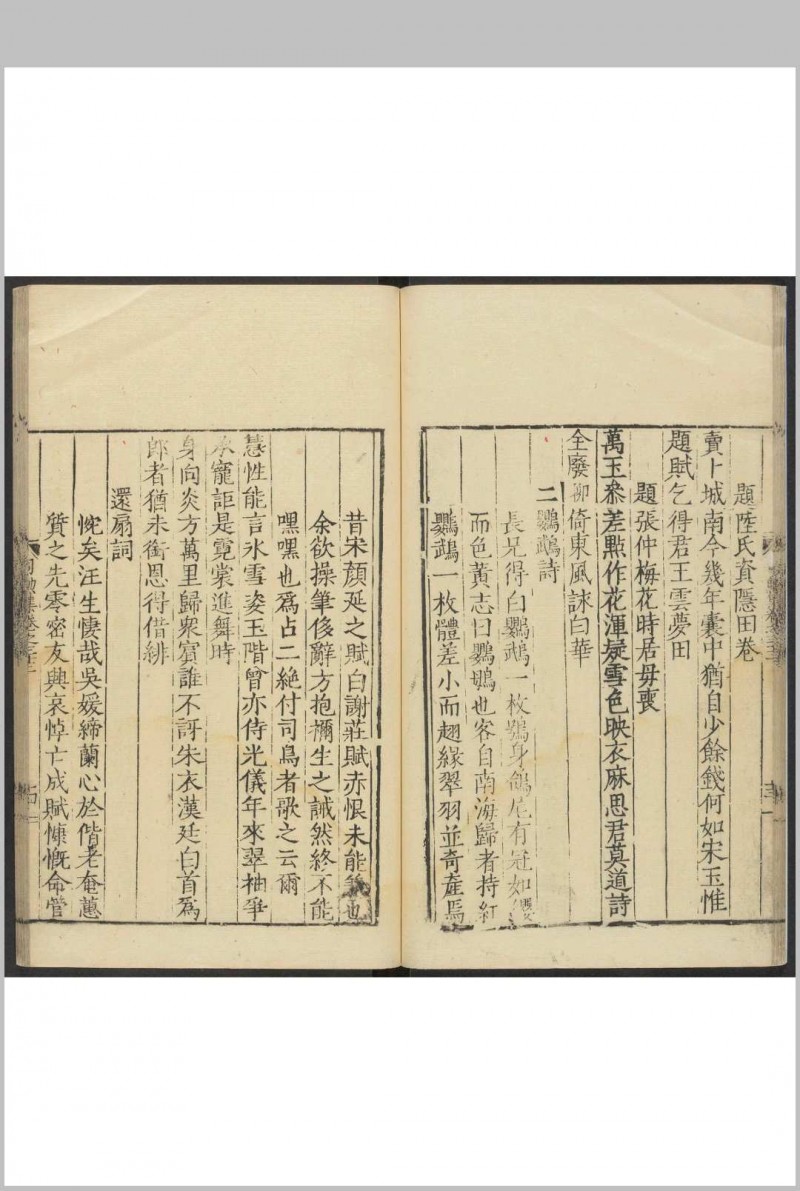 題陸氏資隱田卷
賣卜城南今幾年囊中猶自少餘錢何如宋玉惟
題賦乞得君王雲夢田
題張仲梅花時居毋喪
萬玉叅差點作花渾疑雪色映衣麻思君莫道詩
全廢聊倚東風誄白華
二鸚鵡詩
長兄得白鸚鵡一枚鶚身鴿尾有冠如纓
而色黃志曰鸚䳇也客自南海歸者持紅
鸚鵡一枚體差小而趐緣翠羽並奇產焉
昔宋顏延之賦白謝莊賦赤恨未能也
余欲操筆侈辭方抱禰生之誡然終不能
嘿嘿也爲占二絶付司鳥者歌之云爾
慧性能言氷雪姿玉階曾亦侍光儀年來翠袖爭
承寵詎是霓裳進舞時
身向炎方萬里歸衆賓誰不訝朱衣漢廷白首爲
郎者猶未銜恩得借緋
還扇詞
忱矣汪生悽哉吳媛締蘭心於偕老奄蕙
質之先零密友興哀悼亡成賦慷慨命管